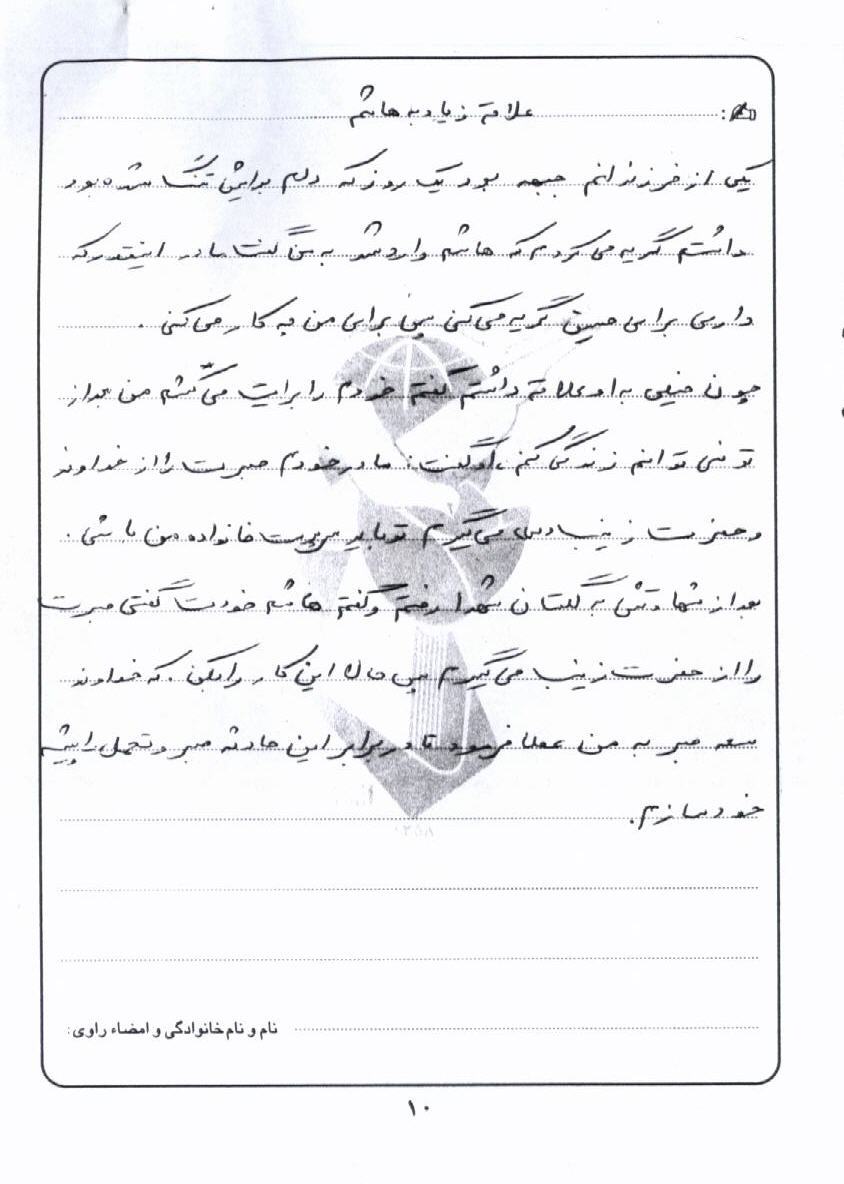 علاقه زیاد به هاشم
یکی از فرزندانم جبهه بود یک روز که دلم برایش تنگ شده بود
داشتم گریه می کردم که هاشم وارد شد به من گفت مادر اینقدر که
داری برای حسین گریه می کنی پس برای من چه کار می کنی .
چون خیلی به او علاقه داشتم گفتم خودم را برایت می کشم من بعد از
تو نمی توانم زندگی کنم ، او گفت : مادر خودم صبرت را از خداوند
و حضرت زینب می گیرم تو باید سرپرست خانواده من باشی .
بعد از شهادتش به گلستان شهدا رفتم و گفتم هاشم خودت گفتی صبرت
را از حضرت زینب می گیرم پس حالا این کار را بکن . که خداوند
سعه صبر به من عطا فرمود تا در برابر این حادثه صبر و تحمل را پیشه
خود سازم .
نام و نام خانوادگی و امضاء راوی:
۱۰